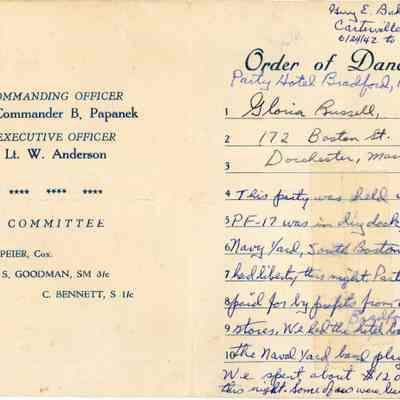 COMMANDING OFFICER
Commander B. Papanek
EXECUTIVE OFFICER
Lt. W. Anderson
**** **** ****
COMMITTEE
PEIER, Cox.
S. GOODMAN, SM 3/c
C. BENNETT, S 1/c
Guy E. Bak
Carterville
6/24/42 to
Order of Danc
Party Hotel Bradford,
1 Gloria Russell,
2 172 Boston St.
3 Dorchester, Mass
4 This party was held
5 PF-17 was in dry dock
6 Navy Yard, South Boston
7 had liberty this night. Part
8 paid for by profits from
9 stores. We had the hotel
Bradfo
10 the Naval Yard band play
We spent about $120
this night. Some of us were